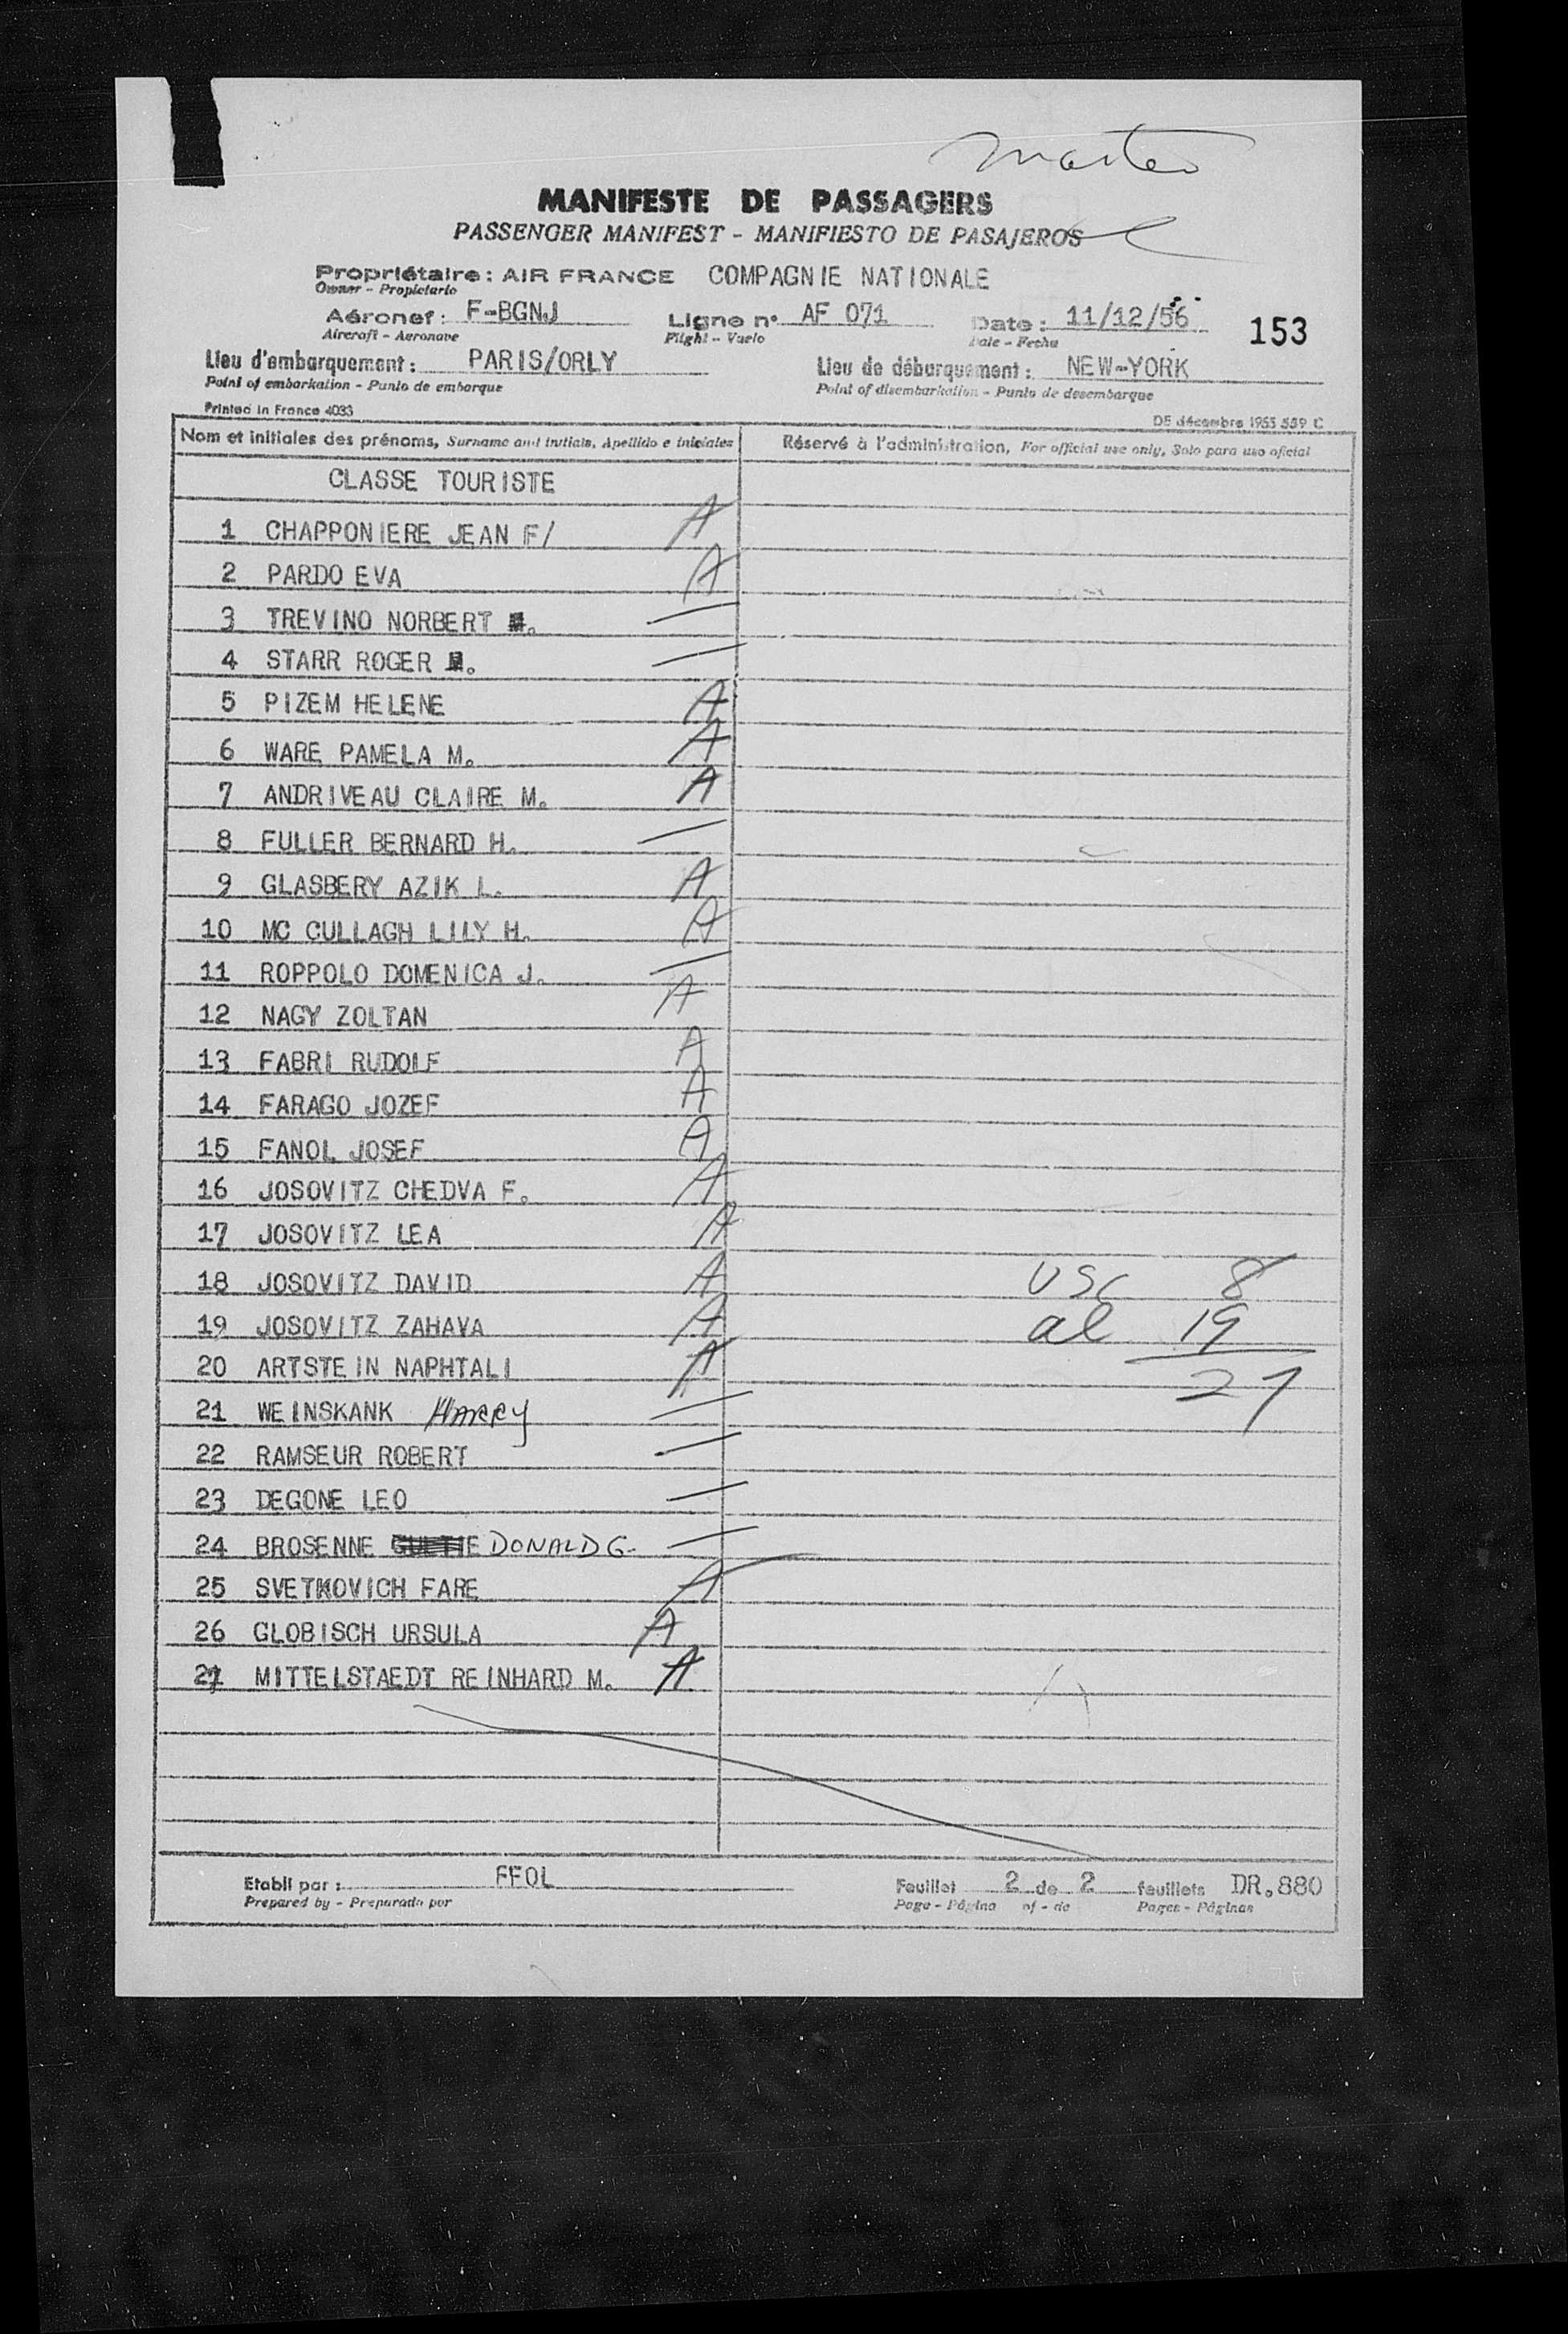 Master
MANIFESTE DE PASSAGERS
PASSENGER MANIFEST - MANIFIESTO DE PASAJEROS
Propriétaire : AIR FRANCE COMPAGNIE NATIONALE
Owner - Propietario
Aéronef : F-BGNJ Ligne n° AF 071 Date : 11/12/56 153
Aircraft - Aeronave Flight - Vuelo Date - Fecha
Lieu d'embarquement : PARIS/ORLY Lieu de débarquement : NEW-YORK
Point of embarkation - Punto de embarque Point of disembarkation - Punto de desembarque
Printed in France 4033 DE décembre 1955 559 C
Nom et initiales des prénoms, Surname and initials, Apellido e iniciales Réservé à l'administration, For official use only, Solo para uso oficial
CLASSE TOURISTE
1 CHAPPONIERE JEAN F/ A
2 PARDO EVA A
3 TREVINO NORBERT . —
4 STARR ROGER . —
5 PIZEM HELENE A
6 WARE PAMELA M. A
7 ANDRIVEAU CLAIRE M. A
8 FULLER BERNARD H. —
9 GLASBERY AZIK L. A
10 MC CULLAGH LILY H. A
11 ROPPOLO DOMENICA J. —
12 NAGY ZOLTAN A
13 FABRI RUDOLF A
14 FARAGO JOZEF A
15 FANOL JOSEF A
16 JOSOVITZ CHEDVA F. A
17 JOSOVITZ LEA A
18 JOSOVITZ DAVID A USC 8
19 JOSOVITZ ZAHAVA A al 19
20 ARTSTEIN NAPHTALI A 27
21 WEINSKANK HARRY —
22 RAMSEUR ROBERT —
23 DEGONE LEO —
24 BROSENNE DONALD G. —
25 SVETKOVICH FARE A
26 GLOBISCH URSULA A
27 MITTELSTAEDT REINHARD M. A
Etabli par : FFOL Feuillet 2 de 2 feuillets DR.880
Prepared by - Preparado por Page - Página of - de Pages - Páginas